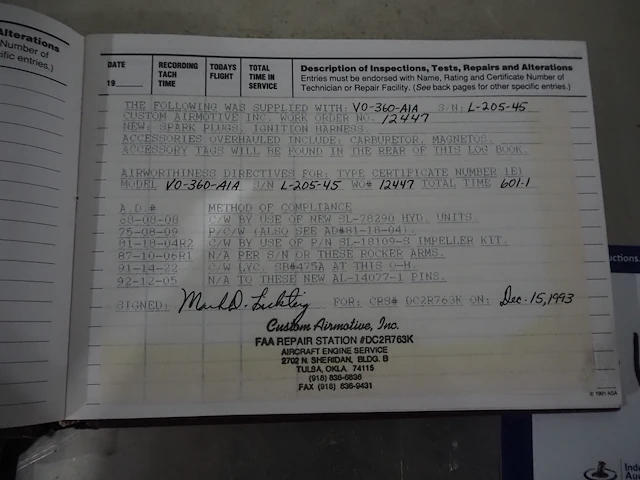 Alterations
Number of
ific entries.)
DATE
19
RECORDING TACH TIME
TODAYS FLIGHT
TOTAL TIME IN SERVICE
Description of Inspections, Tests, Repairs and Alterations
Entries must be endorsed with Name, Rating and Certificate Number of
Technician or Repair Facility. (See back pages for other specific entries.)
THE FOLLOWING WAS SUPPLIED WITH: VO-360-A1A S/N: L-205-45
CUSTOM AIRMOTIVE INC. WORK ORDER NO. 12447
NEW: SPARK PLUGS, IGNITION HARNESS.
ACCESSORIES OVERHAULED INCLUDE: CARBURETOR, MAGNETOS.
ACCESSORY TAGS WILL BE FOUND IN THE REAR OF THIS LOG BOOK.
AIRWORTHINESS DIRECTIVES FOR: TYPE CERTIFICATE NUMBER 1E1
MODEL VO-360-A1A S/N L-205-45 WO# 12447 TOTAL TIME 601.1
A.D.# METHOD OF COMPLIANCE
68-08-08 C/W BY USE OF NEW SL-78290 HYD. UNITS.
75-08-09 P/C/W (ALSO SEE AD#81-18-04).
81-18-04R2 C/W BY USE OF P/N SL-18109-S IMPELLER KIT.
87-10-06R1 N/A PER S/N OR THESE ROCKER ARMS.
91-14-22 C/W LYC. SB#475A AT THIS O-H.
92-12-05 N/A TO THESE NEW AL-14077-1 PINS.
SIGNED: Mark D. FOR: CRS# DC2R763K ON: Dec. 15, 1993
Custom Airmotive, Inc.
FAA REPAIR STATION #DC2R763K
AIRCRAFT ENGINE SERVICE
2702 N. SHERIDAN, BLDG. B
TULSA, OKLA 74115
(918) 836-6836
FAX (918) 836-9431
© 1991 ASA
uctions.
Inde
Au